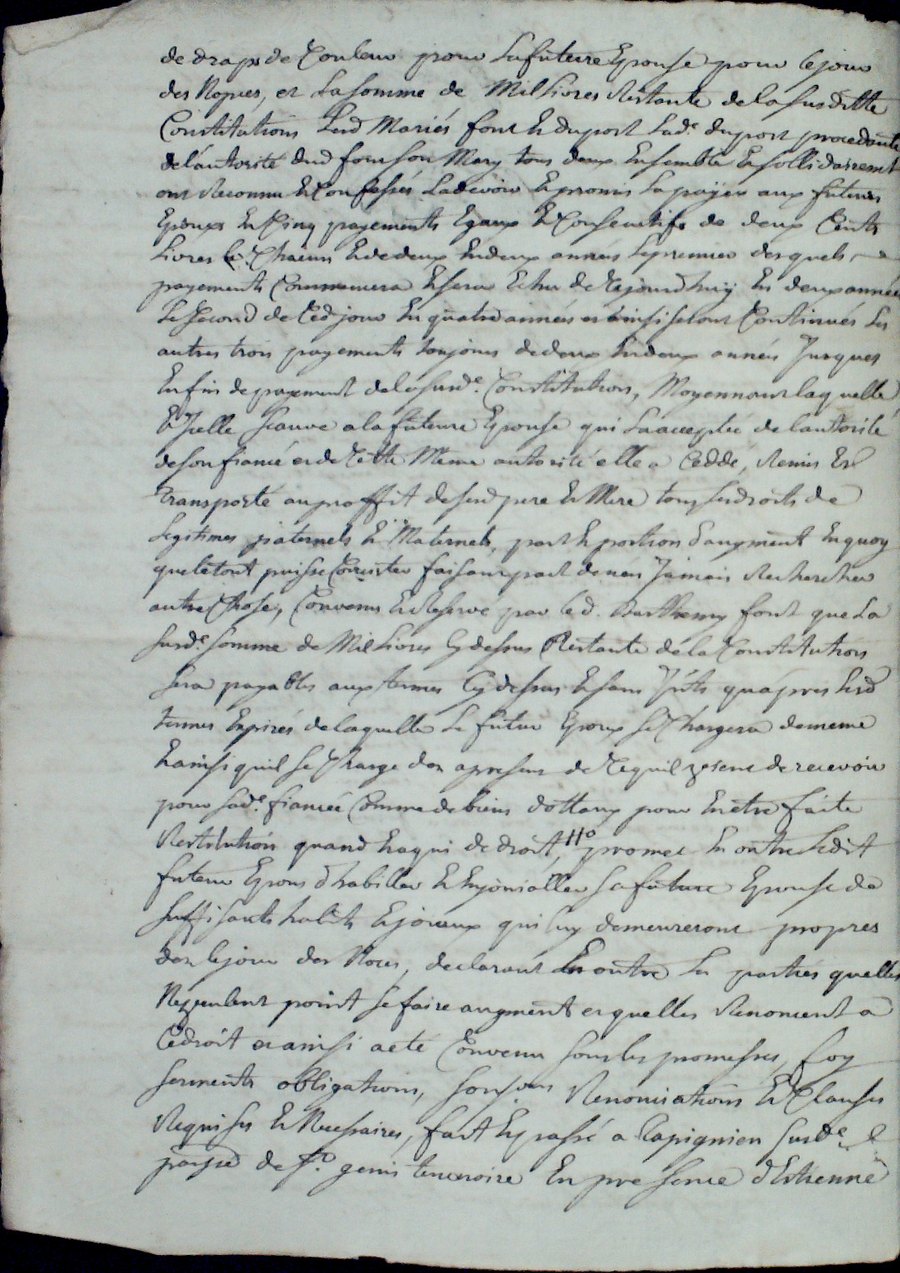 de draps de Couleur pour La future Epouse pour le jour
des Nopces, et La somme de Mil Livres Restante de la susditte
Constitution Lesd Mariés font & duport Lade duport procedante
de l'autorité dud font son Mary tous deux Ensemble Et sollidairement
ont Reconnu Et Confessés La devoir Et promis La payer aux futurs
Epoux En Cinq payements Egaux Et Consecutifs de deux Cents
Livres Chacun Et de deux En deux années Le premier desquels
payements Commencera Et sera Echu de Cejourdhuy En deux années
Le Second de Ced jour En quatre années et ainsi seront Continués Les
autres trois payements toujours de deux En deux années Jusques
Enfin de payement de la susde. Constitution, Moyennant laquelle
& Jcelle sauve a la future Epouse qui La acceptée de l'autorité
de son fiancé et de Cette Même autorité elle a Ceddé, Remis Et
Transporté au proffit de sesd pere Et Mere tous ses droits de
Legitimes paternels Et Maternels, part & portion d'augment En quoy
que le tout puisse Consister faisant pact de n'en Jamais Rechercher
autre Chose, Convenu Et Reservé par led. Barthemy font que La
susde. somme de Mil Livres Cy dessus Restante de la Constitution
sera payable aux termes Cy dessus Et sans Jnts qu'apres Lesd
termes Expirés de laquelle Le futur Epoux se Chargera de meme
Et ainsi quil se Charge des apresent de Ce quil vient de recevoir
pour sade. fiancée Comme de biens dottaux pour En etre faite
Restitution quand & a qui de droit, 11o promet En outre Ledit
futur Epoux d'habiller Et Enjoialler sa future Epouse de
suffisants habits Et joyaux qui luy demeureront propres
des le jour des Noces, declarant En outre Les parties quelles
Ne veulent point se faire augment et quelles Renoncent a
Ce droit et ainsi a eté Convenu sous les promesses, foy
serments obligations, Renonciations Et Clauses
Requises Et Necessaires, fait Et passé a Clapignieu susde.
de St. genis terrenoire En presence d'Estienne